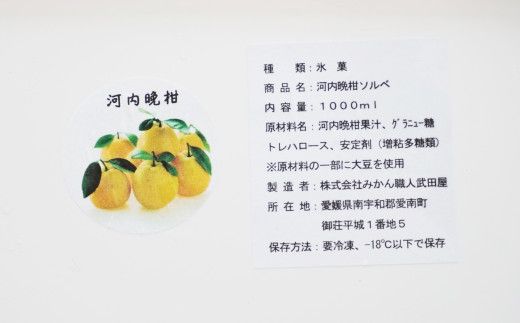 河内晩柑
種　　類：氷　菓
商 品 名：河内晩柑ソルベ
内 容 量：１０００ｍｌ
原材料名：河内晩柑果汁、ｸﾞﾗﾆｭｰ糖
トレハロース、安定剤（増粘多糖類）
※原材料の一部に大豆を使用
製 造 者：株式会社みかん職人武田屋
所 在 地：愛媛県南宇和郡愛南町
御荘平城１番地５
保存方法：要冷凍、-18℃以下で保存